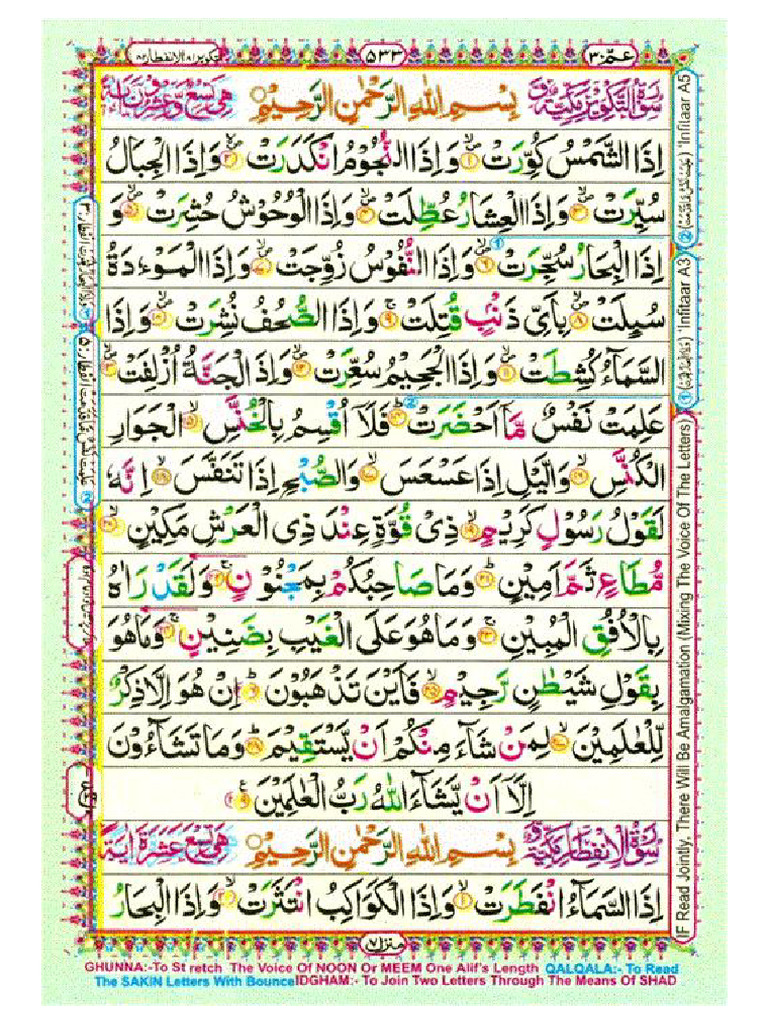 عمّ ٣٠
٥٣٣
التكوير ٨١ الانفطار ٨٢
سُوْرَةُ التَّكْوِيْرِ مَكِّيَّةٌ بِسْمِ اللهِ الرَّحْمٰنِ الرَّحِيْمِ هِيَ تِسْعٌ وَّعِشْرُوْنَ اٰيَةً
اِذَا الشَّمْسُ كُوِّرَتْ ۝١ وَاِذَا النُّجُوْمُ انْكَدَرَتْ ۝٢ وَاِذَا الْجِبَالُ
سُيِّرَتْ ۝٣ وَاِذَا الْعِشَارُ عُطِّلَتْ ۝٤ وَاِذَا الْوُحُوْشُ حُشِرَتْ ۝٥ وَ
اِذَا الْبِحَارُ سُجِّرَتْ ۝٦ وَاِذَا النُّفُوْسُ زُوِّجَتْ ۝٧ وَاِذَا الْمَوْءٗدَةُ
سُىِٕلَتْ ۝٨ بِاَىِّ ذَنْۢبٍ قُتِلَتْ ۝٩ وَاِذَا الصُّحُفُ نُشِرَتْ ۝١٠ وَاِذَا
السَّمَآءُ كُشِطَتْ ۝١١ وَاِذَا الْجَحِيْمُ سُعِّرَتْ ۝١٢ وَاِذَا الْجَنَّةُ اُزْلِفَتْ ۝١٣
عَلِمَتْ نَفْسٌ مَّآ اَحْضَرَتْ ۝١٤ فَلَآ اُقْسِمُ بِالْخُنَّسِ ۝١٥ الْجَوَارِ
الْكُنَّسِ ۝١٦ وَالَّيْلِ اِذَا عَسْعَسَ ۝١٧ وَالصُّبْحِ اِذَا تَنَفَّسَ ۝١٨ اِنَّهٗ
لَقَوْلُ رَسُوْلٍ كَرِيْمٍ ۝١٩ ذِىْ قُوَّةٍ عِنْدَ ذِى الْعَرْشِ مَكِيْنٍ ۝٢٠
مُّطَاعٍ ثَمَّ اَمِيْنٍ ۝٢١ وَمَا صَاحِبُكُمْ بِمَجْنُوْنٍ ۝٢٢ وَلَقَدْ رَاٰهُ
بِالْاُفُقِ الْمُبِيْنِ ۝٢٣ وَمَا هُوَ عَلَى الْغَيْبِ بِضَنِيْنٍ ۝٢٤ وَمَا هُوَ
بِقَوْلِ شَيْطٰنٍ رَّجِيْمٍ ۝٢٥ فَاَيْنَ تَذْهَبُوْنَ ۝٢٦ اِنْ هُوَ اِلَّا ذِكْرٌ
لِّلْعٰلَمِيْنَ ۝٢٧ لِمَنْ شَآءَ مِنْكُمْ اَنْ يَّسْتَقِيْمَ ۝٢٨ وَمَا تَشَآءُوْنَ
اِلَّآ اَنْ يَّشَآءَ اللهُ رَبُّ الْعٰلَمِيْنَ ۝٢٩
سُوْرَةُ الْاِنْفِطَارِ مَكِّيَّةٌ بِسْمِ اللهِ الرَّحْمٰنِ الرَّحِيْمِ هِيَ تِسْعَ عَشْرَةَ اٰيَةً
اِذَا السَّمَآءُ انْفَطَرَتْ ۝١ وَاِذَا الْكَوَاكِبُ انْتَثَرَتْ ۝٢ وَاِذَا الْبِحَارُ
منزل ٧
IF Read Jointly, There Will Be Amalgamation (Mixing The Voice Of The Letters) ① 'Infitaar A3 ② 'Infilaar A5
GHUNNA:-To Stretch The Voice Of NOON Or MEEM One Alif's Length QALQALA:- To Read
The SAKIN Letters With Bounce IDGHAM:- To Join Two Letters Through The Means Of SHAD